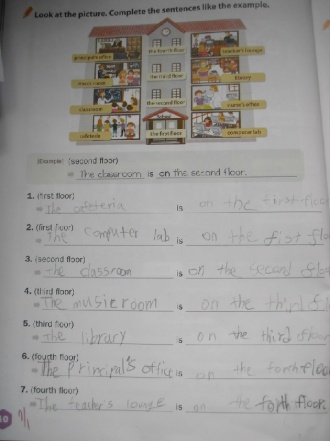 Look at the picture. Complete the sentences like the example.
principal's office
the fourth floor
teacher's lounge
music room
the third floor
library
classroom
the second floor
nurse's office
cafeteria
the first floor
computer lab
(Example) (second floor)
The classroom is on the second floor.
1. (first floor)
The cafeteria is on the first floor
2. (first floor)
The computer lab is on the fist floor
3. (second floor)
The classroom is on the second floor
4. (third floor)
The music room is on the third floor
5. (third floor)
The library is on the third floor
6. (fourth floor)
The Principal's office is on the forth floor
7. (fourth floor)
The teache's lounge is on the forth floor.
10